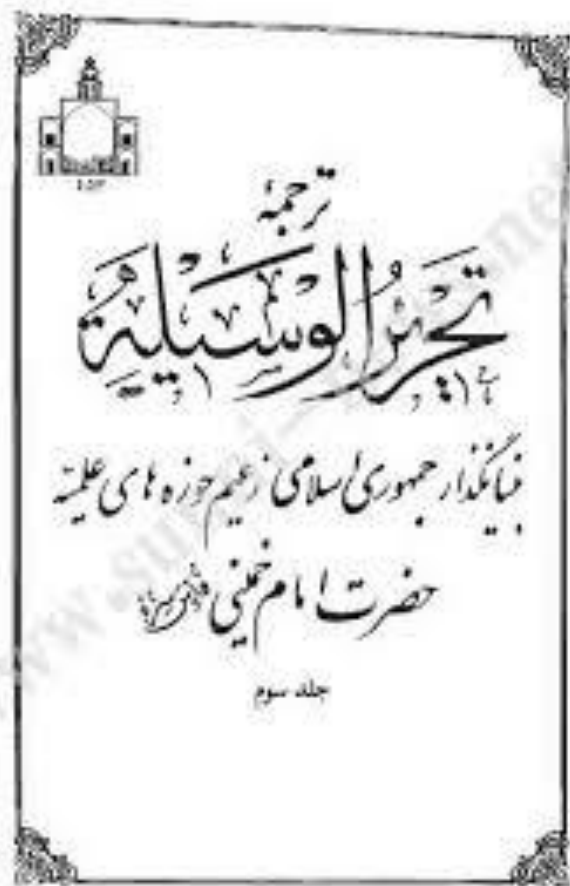 ۱۵۳
ترجمهٔ
تحریرُ الوَسیلَة
بنیانگذار جمهوری اسلامی زعیم حوزه های علمیّه
حضرت امام خمینی
جلد سوم